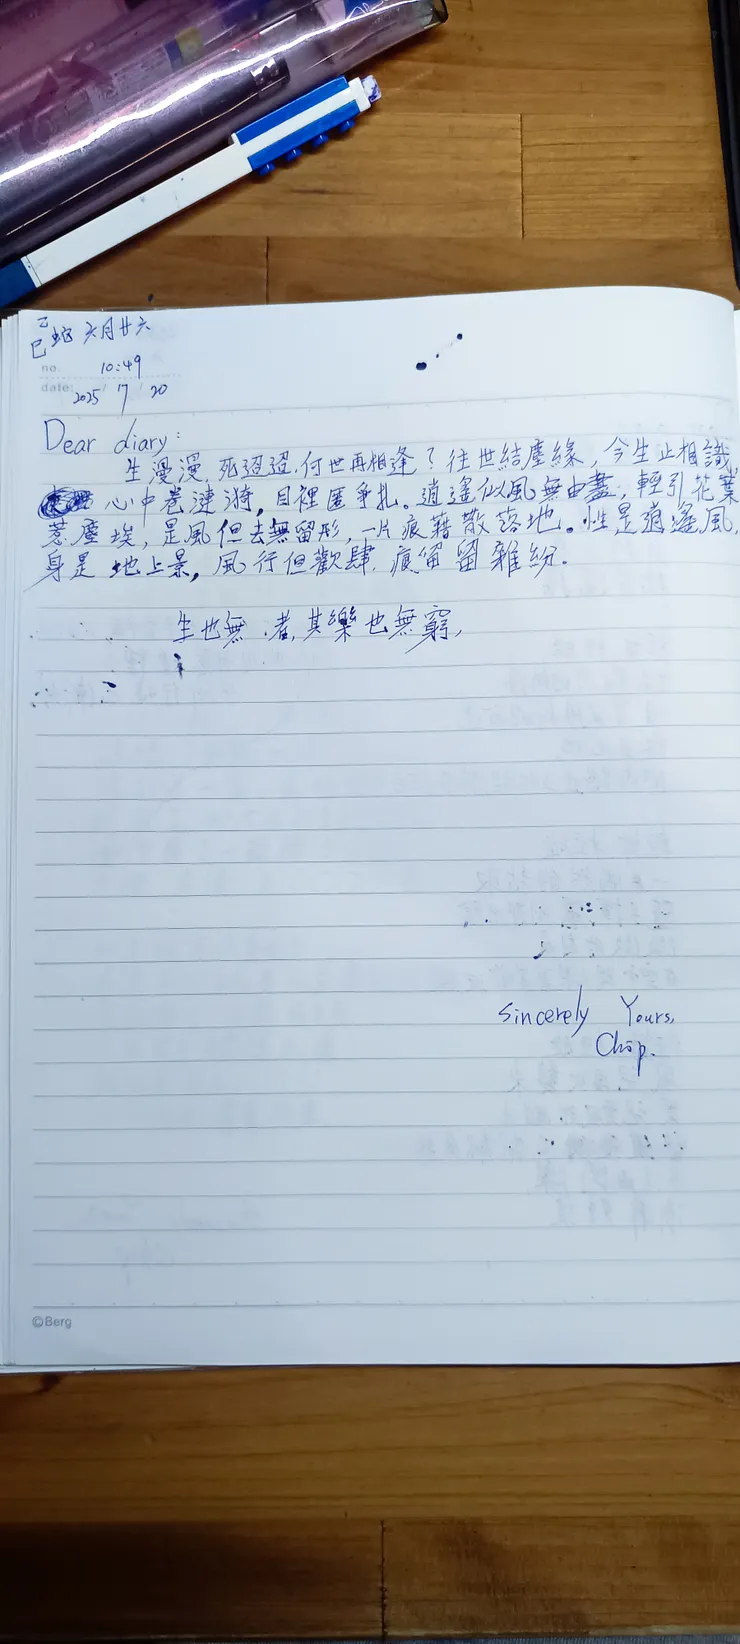 乙巳蛇 六月廿六
no. 10:49
date: 2025 / 7 / 20
Dear diary:
生漫漫,死迢迢,何世再相逢?往世結塵緣,今生止相識,
心中卷漣漪,目裡匿爭扎。逍遙似風無由盡,輕引花葉
惹塵埃,是風但去無留形,一片痕藉散落地。性是逍遙風,
身是地上景,風行但歡肆,痕留留雜紛.
生也無 者,其樂也無窮,
Sincerely Yours,
Chop.
©Berg